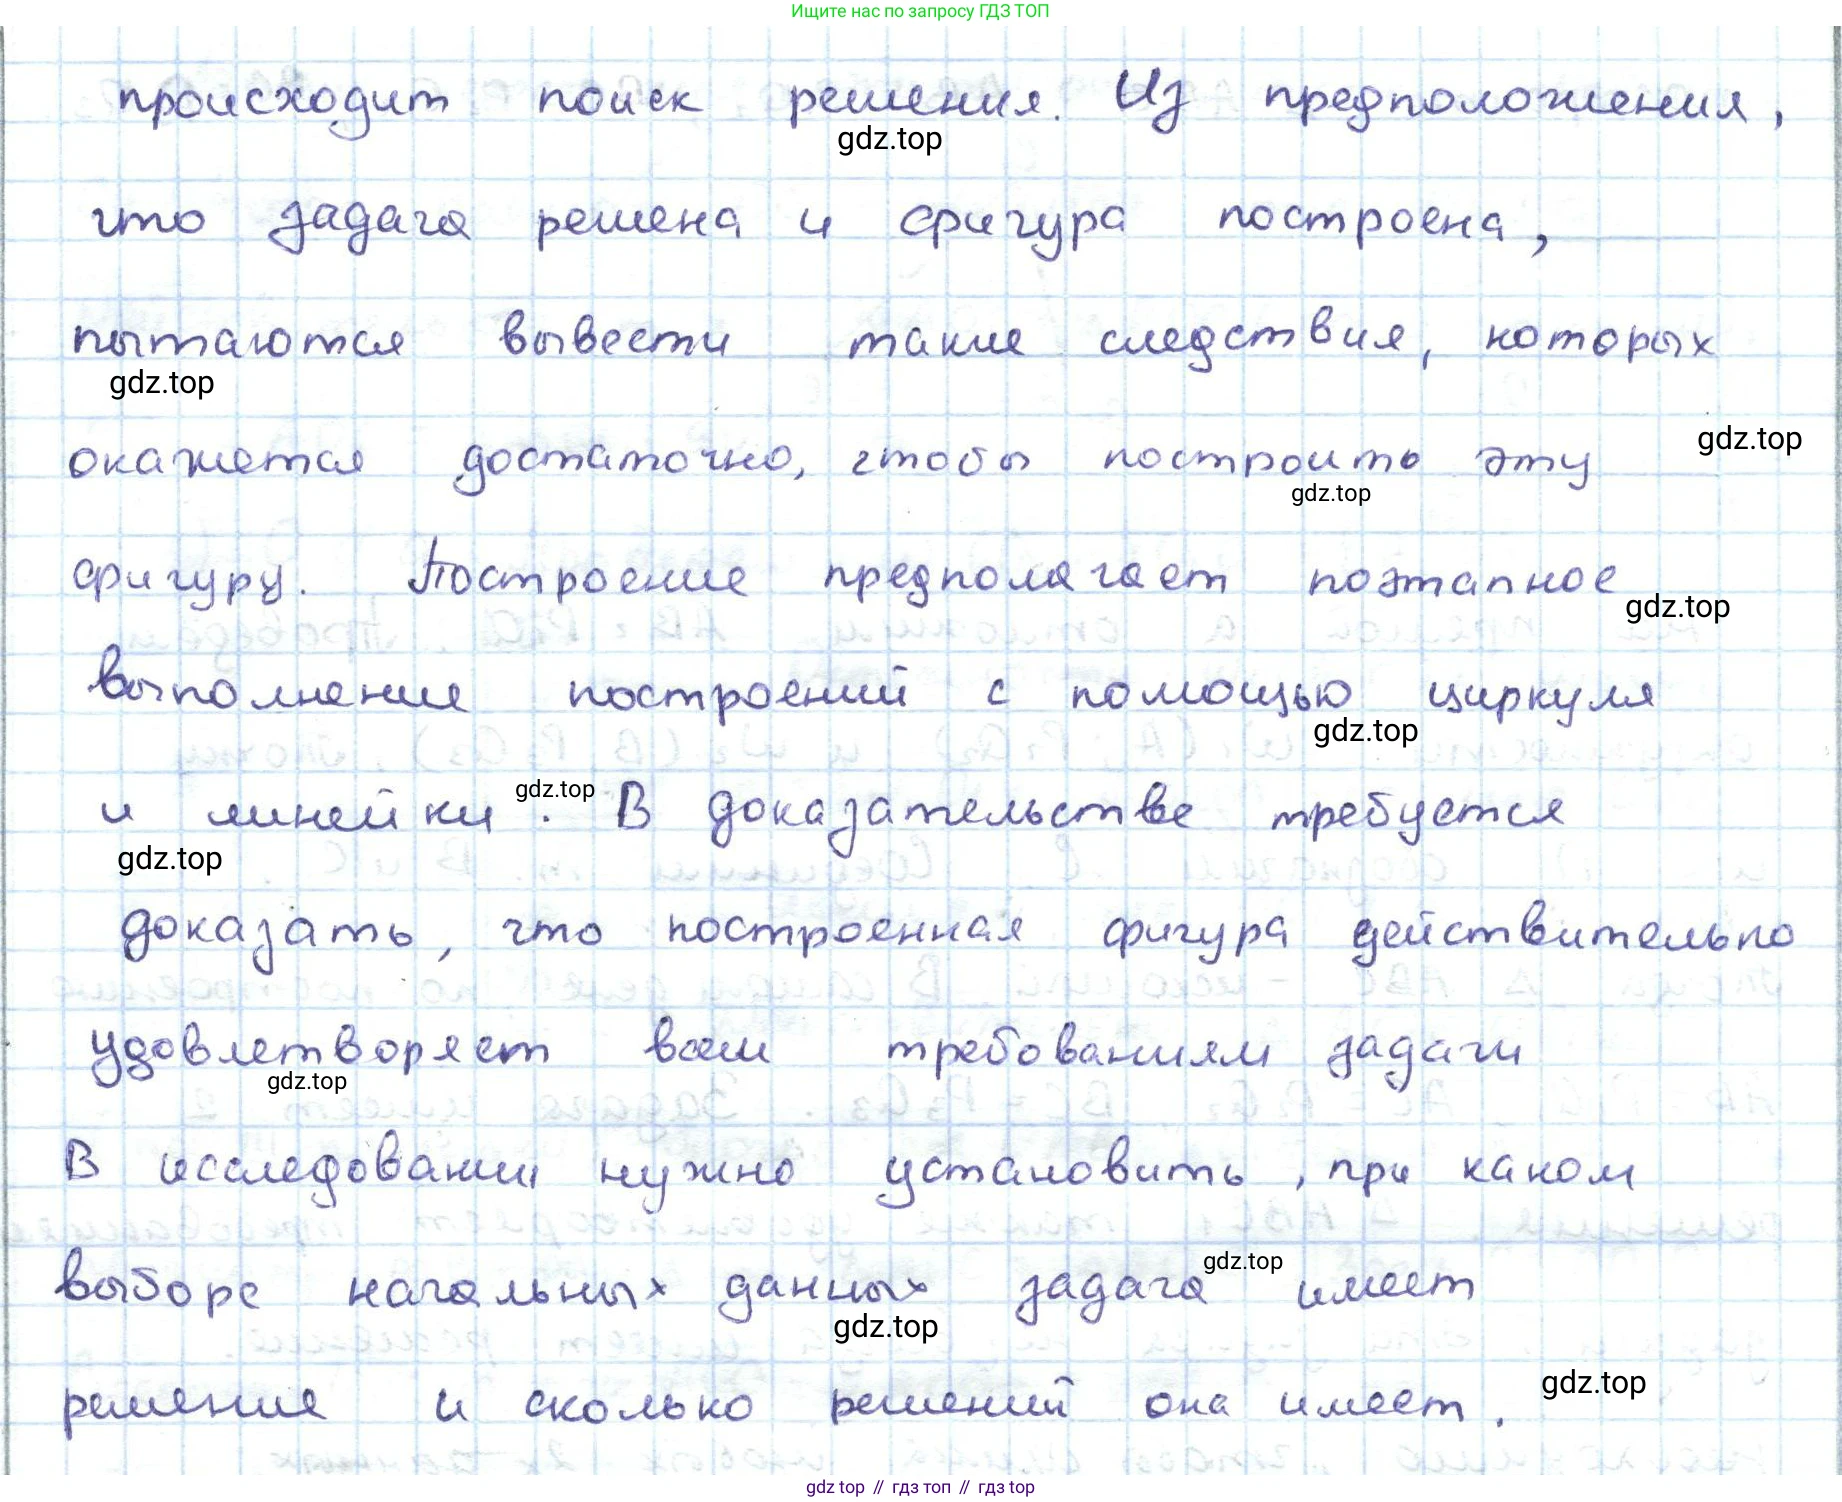 Ищите нас по запросу ГДЗ ТОП
происходит поиск решения. Из предположения,
gdz.top
что задача решена и фигура построена,
пытаются вывести такие следствия, которых
gdz.top
gdz.top
окажется достаточно, чтобы построить эту
gdz.top
фигуру. Построение предполагает поэтапное
gdz.top
выполнение построений с помощью циркуля
gdz.top
gdz.top
и линейки. В доказательстве требуется
gdz.top
доказать, что построенная фигура действительно
удовлетворяет всем требованиям задачи
gdz.top
В исследовании нужно установить, при каком
gdz.top
выборе начальных данных задача имеет
gdz.top
gdz.top
решение и сколько решений она имеет.
gdz top // гдз топ // gdz top